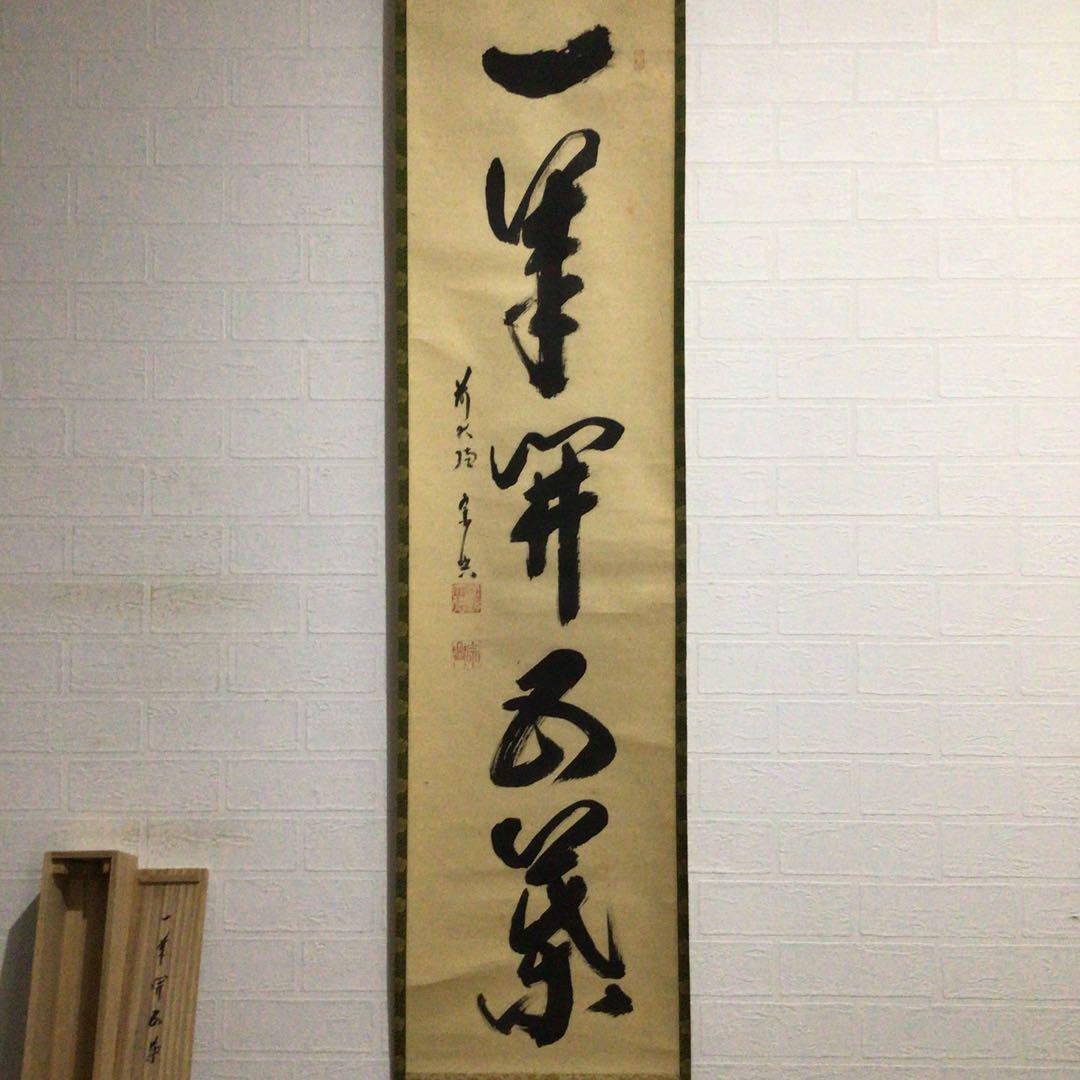 一華開五葉
前大徳
一華開五葉